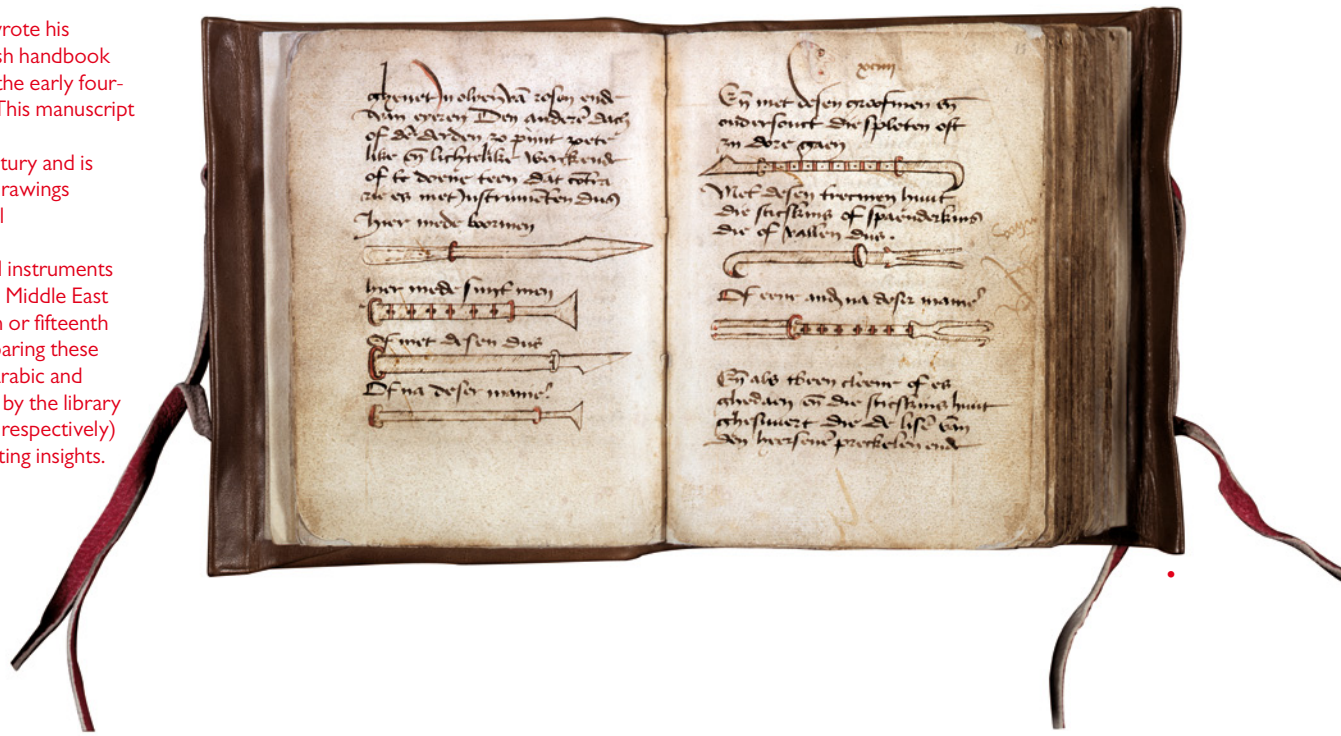 wrote his
sh handbook
the early four-
This manuscript
tury and is
rawings
l
l instruments
Middle East
n or fifteenth
paring these
rabic and
by the library
respectively)
ting insights.
ghenet olven vā rosen ende
van eyeren Den anderē dach
of dē derden zo pijnt zoete
like eñ lichtelike
of te doene teen dat cōtra
rie es met Instrumēten dus
hier mede boormen
hier mede men
Of met desen dus
Of na deser manie
xciiij
Eñ met desen eñ
ondersouct die spleten oft
zij dore gaen
Met desen trecmen huut
die stickins of spaenderkins
die of vallen dus.
Of eene andr na deser manie
Eñ als tbeen cleene of es
ghedaen eñ die stickins huut
die de vān
den hersenē preckelen ende